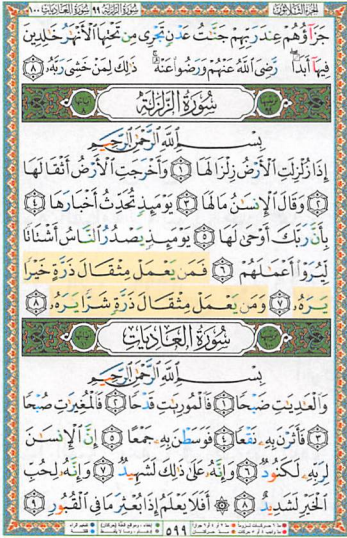 الجزء الثلاثون سورة الزلزلة ٩٩ سورة العاديات ١٠٠
جَزَآؤُهُمْ عِندَ رَبِّهِمْ جَنَّٰتُ عَدْنٍ تَجْرِى مِن تَحْتِهَا ٱلْأَنْهَٰرُ خَٰلِدِينَ
فِيهَآ أَبَدًا ۖ رَّضِىَ ٱللَّهُ عَنْهُمْ وَرَضُوا۟ عَنْهُ ۚ ذَٰلِكَ لِمَنْ خَشِىَ رَبَّهُۥ ٨
سُورَةُ الزَّلْزَلَةِ
بِسْمِ ٱللَّهِ ٱلرَّحْمَٰنِ ٱلرَّحِيمِ
إِذَا زُلْزِلَتِ ٱلْأَرْضُ زِلْزَالَهَا ١ وَأَخْرَجَتِ ٱلْأَرْضُ أَثْقَالَهَا
٢ وَقَالَ ٱلْإِنسَٰنُ مَا لَهَا ٣ يَوْمَئِذٍ تُحَدِّثُ أَخْبَارَهَا ٤
بِأَنَّ رَبَّكَ أَوْحَىٰ لَهَا ٥ يَوْمَئِذٍ يَصْدُرُ ٱلنَّاسُ أَشْتَاتًا
لِّيُرَوْا۟ أَعْمَٰلَهُمْ ٦ فَمَن يَعْمَلْ مِثْقَالَ ذَرَّةٍ خَيْرًا
يَرَهُۥ ٧ وَمَن يَعْمَلْ مِثْقَالَ ذَرَّةٍ شَرًّا يَرَهُۥ ٨
سُورَةُ العَادِيَاتِ
بِسْمِ ٱللَّهِ ٱلرَّحْمَٰنِ ٱلرَّحِيمِ
وَٱلْعَٰدِيَٰتِ ضَبْحًا ١ فَٱلْمُورِيَٰتِ قَدْحًا ٢ فَٱلْمُغِيرَٰتِ صُبْحًا
٣ فَأَثَرْنَ بِهِۦ نَقْعًا ٤ فَوَسَطْنَ بِهِۦ جَمْعًا ٥ إِنَّ ٱلْإِنسَٰنَ
لِرَبِّهِۦ لَكَنُودٌ ٦ وَإِنَّهُۥ عَلَىٰ ذَٰلِكَ لَشَهِيدٌ ٧ وَإِنَّهُۥ لِحُبِّ
ٱلْخَيْرِ لَشَدِيدٌ ٨ ۞ أَفَلَا يَعْلَمُ إِذَا بُعْثِرَ مَا فِى ٱلْقُبُورِ ٩
٥٩٩